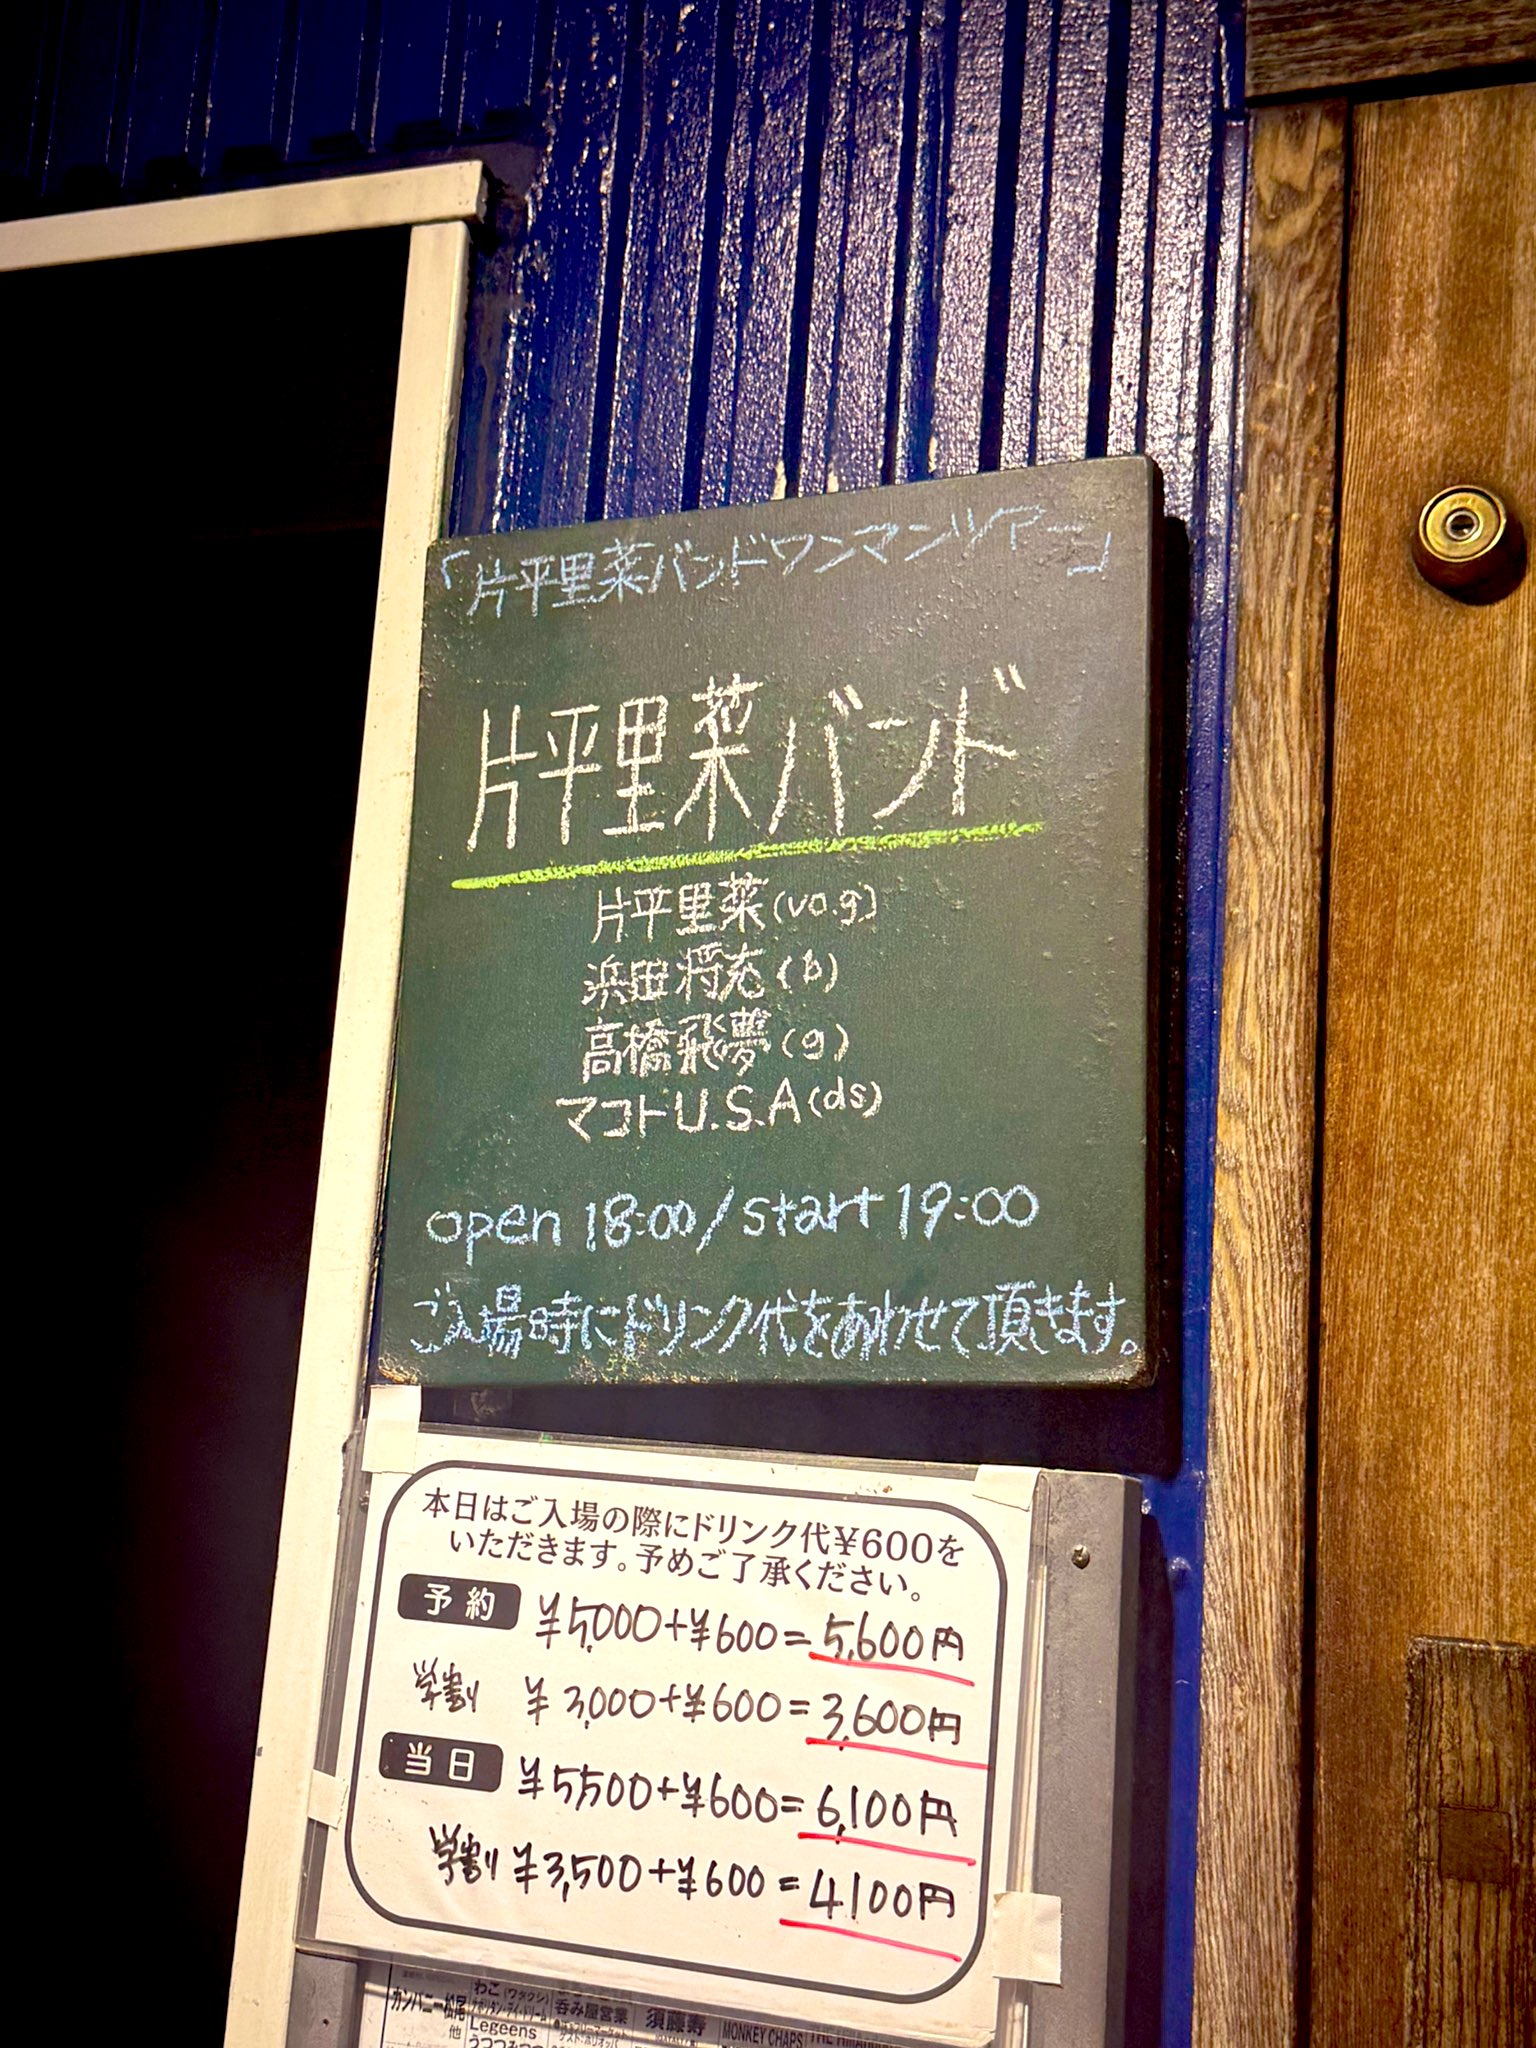 「片平里菜バンドワンマンツアー」
片平里菜バンド
片平里菜(vo.g)
浜田将充(b)
高橋飛夢(g)
マコトU.S.A(ds)
open 18:00/start 19:00
ご入場時にドリンク代をあわせて頂きます。
本日はご入場の際にドリンク代¥600を
いただきます。予めご了承ください。
予約 ¥5,000+¥600=5,600円
学割 ¥3,000+¥600=3,600円
当日 ¥5,500+¥600=6,100円
学割 ¥3,500+¥600=4,100円
カンパニー松尾 わこ(ワタクシ) 呑み屋営業 須藤寿
他 Legeens MONKEY CHAPS